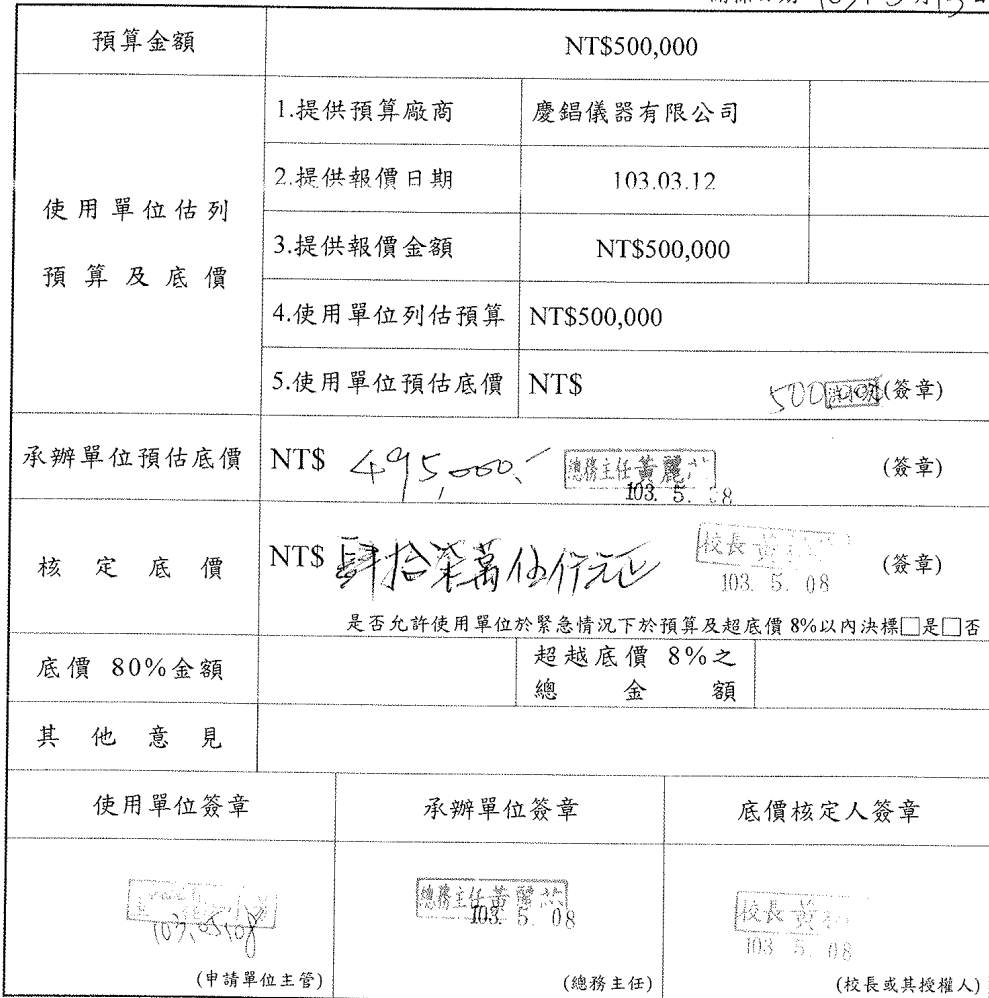 預算金額 NT$500,000
使用單位估列
預算及底價
1.提供預算廠商 慶錩儀器有限公司
2.提供報價日期 103.03.12
3.提供報價金額 NT$500,000
4.使用單位列估預算 NT$500,000
5.使用單位預估底價 NT$ (簽章)
承辦單位預估底價 NT$ 495,000.- 總務主任黃麗 (簽章)
103. 5. 08
核定底價 NT$ 肆拾柒萬伍仟元正 校長黃 (簽章)
103. 5. 08
是否允許使用單位於緊急情況下於預算及超底價 8%以內決標□是□否
底價 80%金額 超越底價 8%之
總金額
其他意見
使用單位簽章 承辦單位簽章 底價核定人簽章
總務主任黃麗 校長黃
103.05.08 103. 5. 08 103 5. 08
(申請單位主管) (總務主任) (校長或其授權人)